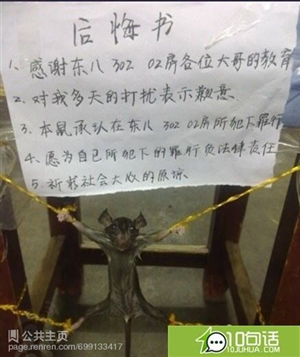 后悔书
1、感谢东八 302 02房各位大哥的教育
2、对我多天的打扰表示歉意
3、本鼠承认在东八 302 02房所犯下罪行
4、愿为自己所犯下的罪行负法律责任
5、祈求社会大众的原谅
圆 公共主页
page.renren.com/699133417
10句话
10JUHUA.COM